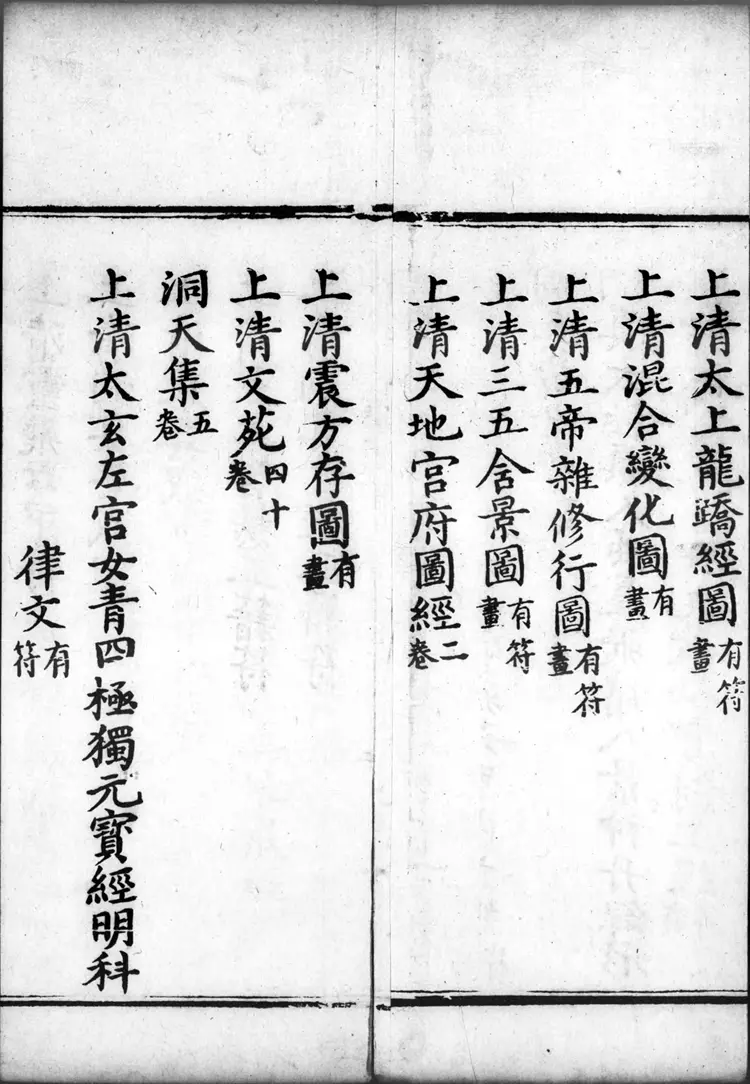 上清太上龍蹻經圖有符畫
上清混合變化圖有畫
上清五帝雜修行圖有符畫
上清三五含景圖有符畫
上清天地宮府圖經二卷
上清震方存圖有畫
上清文苑四十卷
洞天集五卷
上清太玄左宮女青四極獨元寶經明科
律文有符